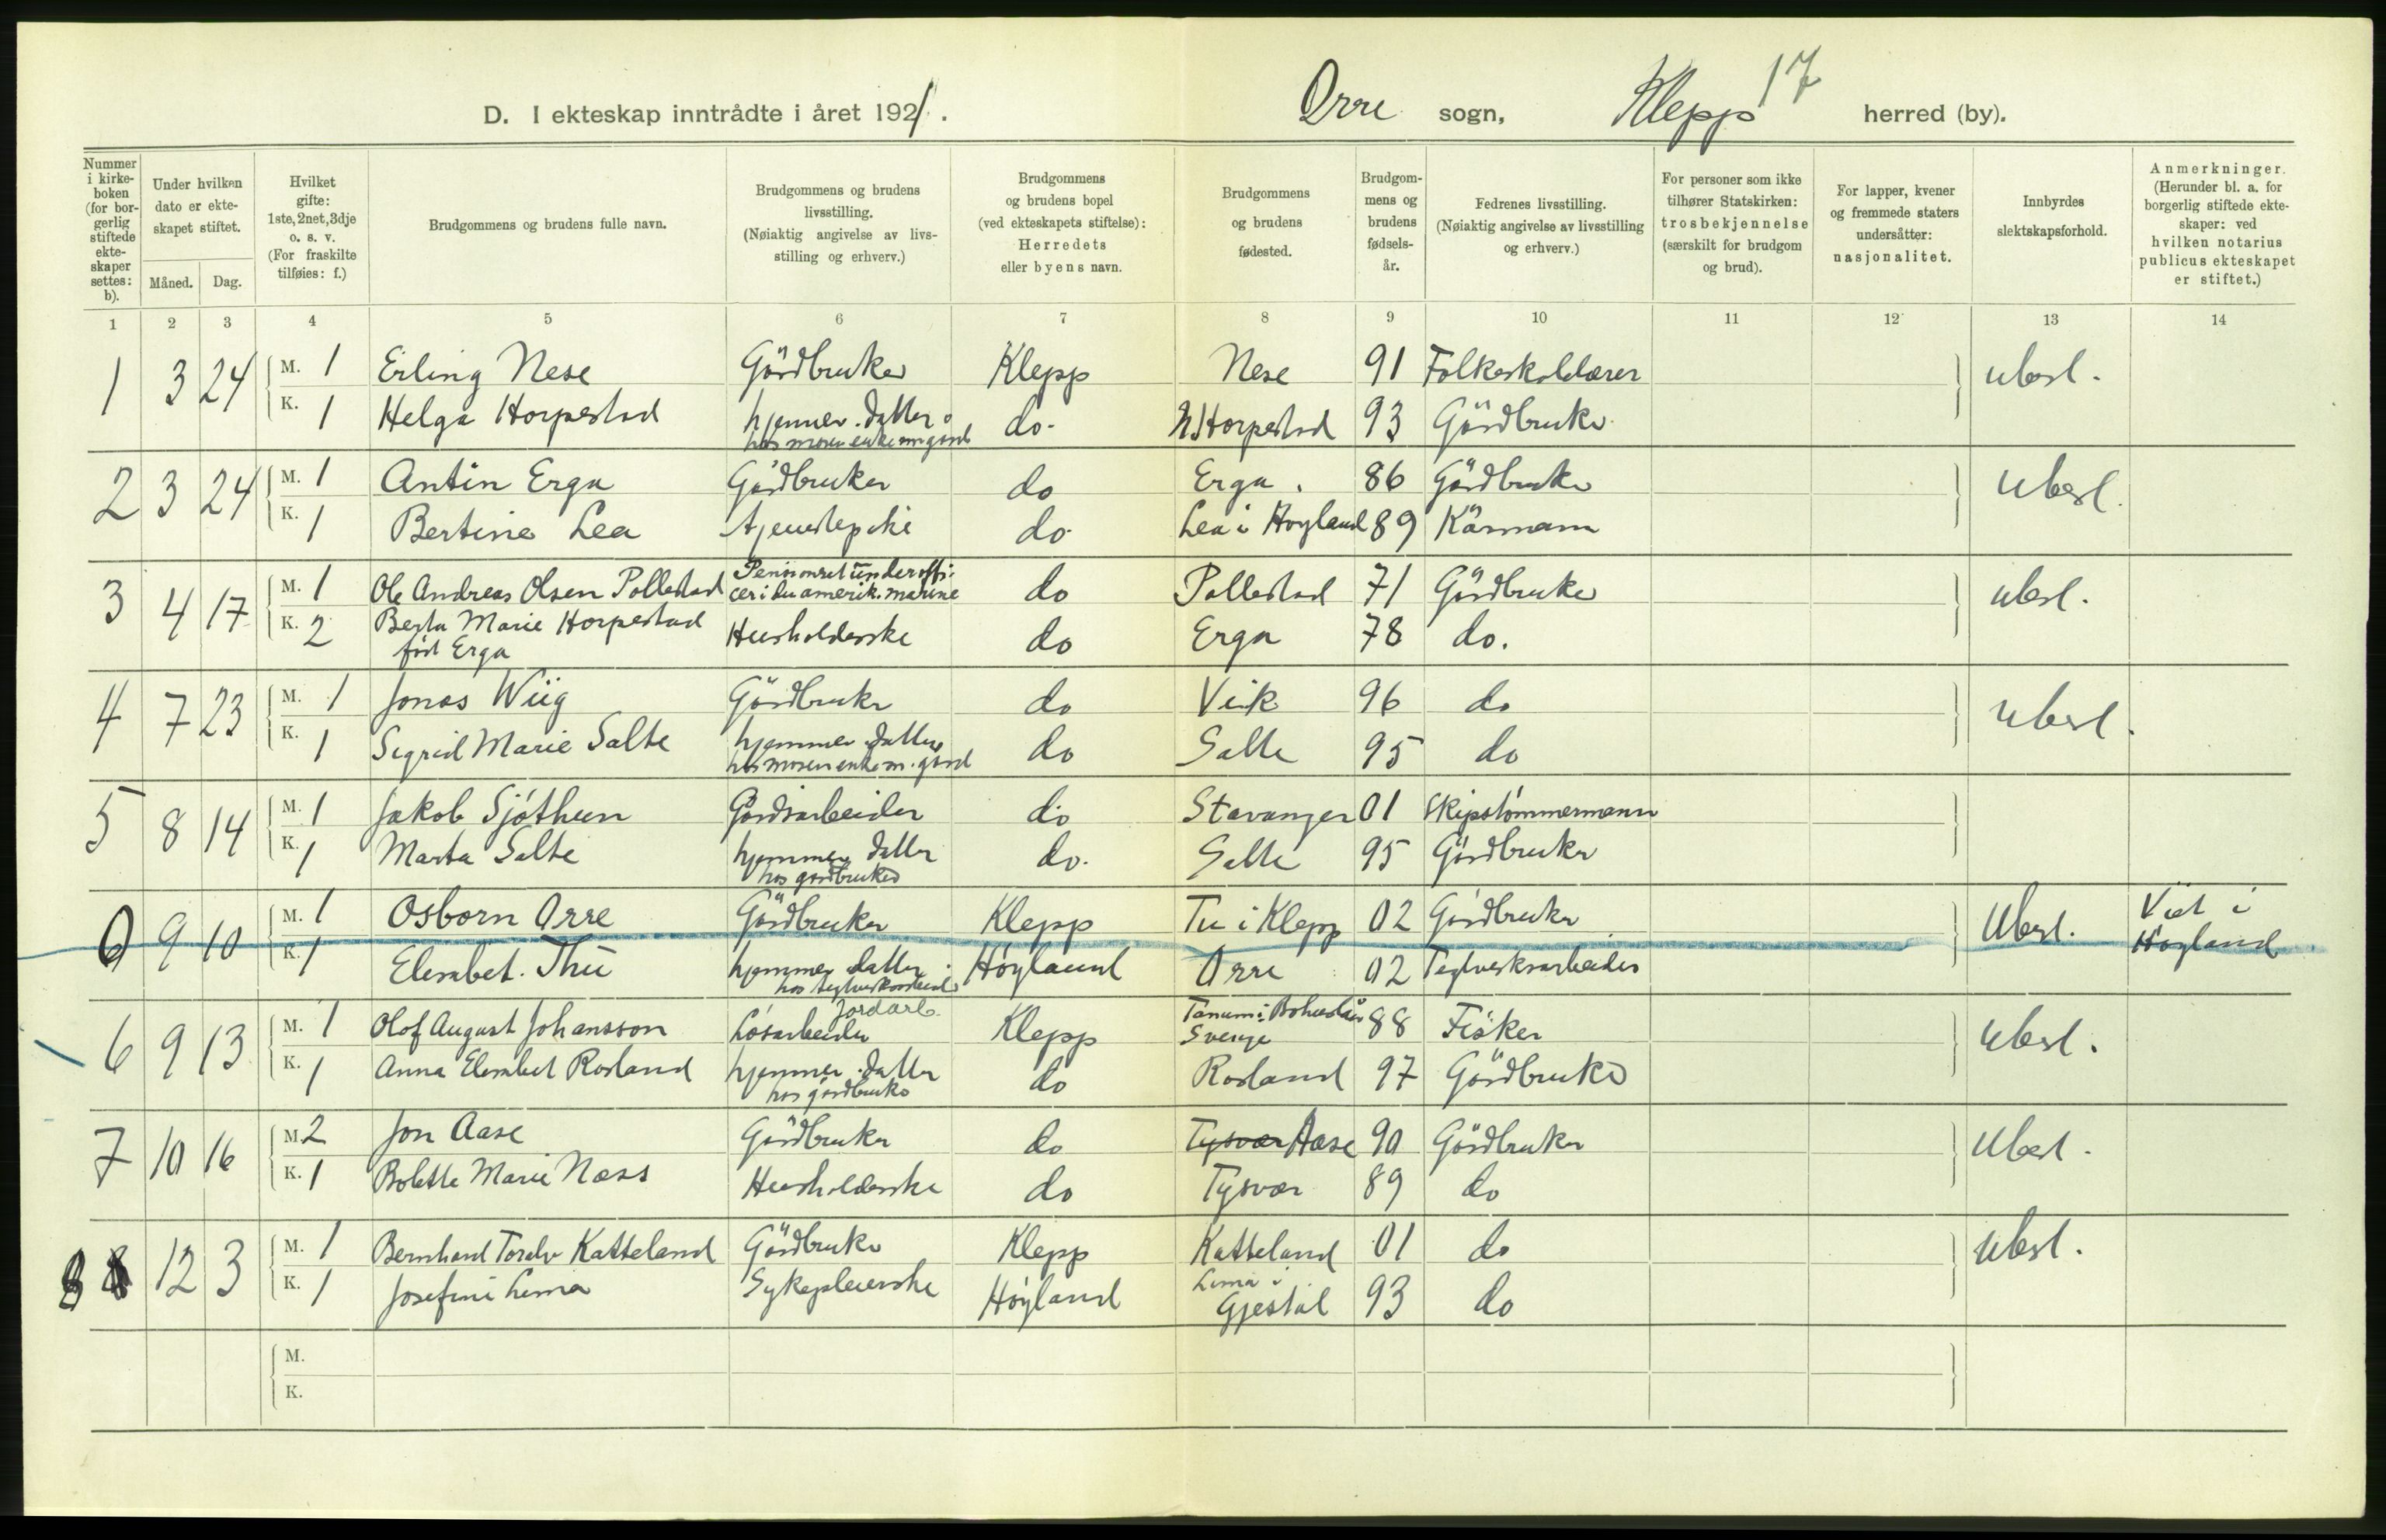 17
D. I ekteskap inntrådte i året 1921. Orre sogn, Klepp herred (by).
Nummer i kirkeboken (for borgerlig stiftede ekteskaper settes: b).
Under hvilken dato er ekteskapet stiftet.
Måned. Dag.
Hvilket gifte: 1ste, 2net, 3dje o. s. v. (For fraskilte tilføies: f.)
Brudgommens og brudens fulle navn.
Brudgommens og brudens livsstilling. (Nøiaktig angivelse av livsstilling og erhverv.)
Brudgommens og brudens bopel (ved ekteskapets stiftelse): Herredets eller byens navn.
Brudgommens og brudens fødested.
Brudgommens og brudens fødselsår.
Fedrenes livsstilling. (Nøiaktig angivelse av livsstilling og erhverv.)
For personer som ikke tilhører Statskirken: trosbekjennelse (særskilt for brudgom og brud).
For lapper, kvener og fremmede staters undersåtter: nasjonalitet.
Innbyrdes slektskapsforhold.
Anmerkninger. (Herunder bl. a. for borgerlig stiftede ekteskaper: ved hvilken notarius publicus ekteskapet er stiftet.)
1 2 3 4 5 6 7 8 9 10 11 12 13 14
1 3 24 M. 1 Erling Nese Gårdbruker Klepp Nese 91 Folkeskolelærer ubesl.
K. 1 Helga Horpestad hjemmev. datter hos moren enke m gård do. N Horpestad 93 Gårdbruker
2 3 24 M. 1 Antin Erga Gårdbruker do Erga. 86 Gårdbruker Ubesl.
K. 1 Bertine Lea tjenestepike do. Lea i Høyland 89 Kårmann
3 4 17 M. 1 Ole Andreas Olsen Pollestad Pensionert underofficer i den amerik. marine do Pollestad 71 Gårdbruker ubesl.
K. 2 Berta Marie Horpestad født Erga Husholderske do Erga 78 do.
4 7 23 M. 1 Jonas Wiig Gårdbruker do Vik 96 do ubesl.
K. 1 Sigrid Marie Salte hjemmev. datter hos moren enke m. gård do Salte 95 do
5 8 14 M. 1 Jakob Sjøthun Gårdsarbeider do Stavanger 01 Skipstømmermann
K. 1 Marta Salte hjemmev datter hos gårdbruker do. Salte 95 Gårdbruker
6 9 10 M. 1 Osborn Orre Gårdbruker Klepp Tu i Klepp 02 Gårdbruker Ubesl. Viet i Høyland
K. 1 Elisabet Thu hjemmev datter hos teglverksarbeider Høyland Orre 02 Teglverksarbeider
6 9 13 M. 1 Olof August Johansson Løsarbeider Jordarb. Klepp Tanum i Bohuslän Sverige 88 Fisker Ubesl.
K. 1 Anna Elisabet Rosland hjemmev. datter hos gårdbruker do Rosland 97 Gårdbruker
7 10 16 M. 2 Jon Aase Gårdbruker do Tysvær Aase 90 Gårdbruker Ubesl.
K. 1 Bolette Marie Næss Husholderske do Tysvær 89 do
8 12 3 M. 1 Bernhard Toralv Katteland Gårdbruker Klepp Katteland 01 do Ubesl.
K. 1 Josefine Lima Sykepleierske Høyland Lima i Gjestal 93 do
M.
K.